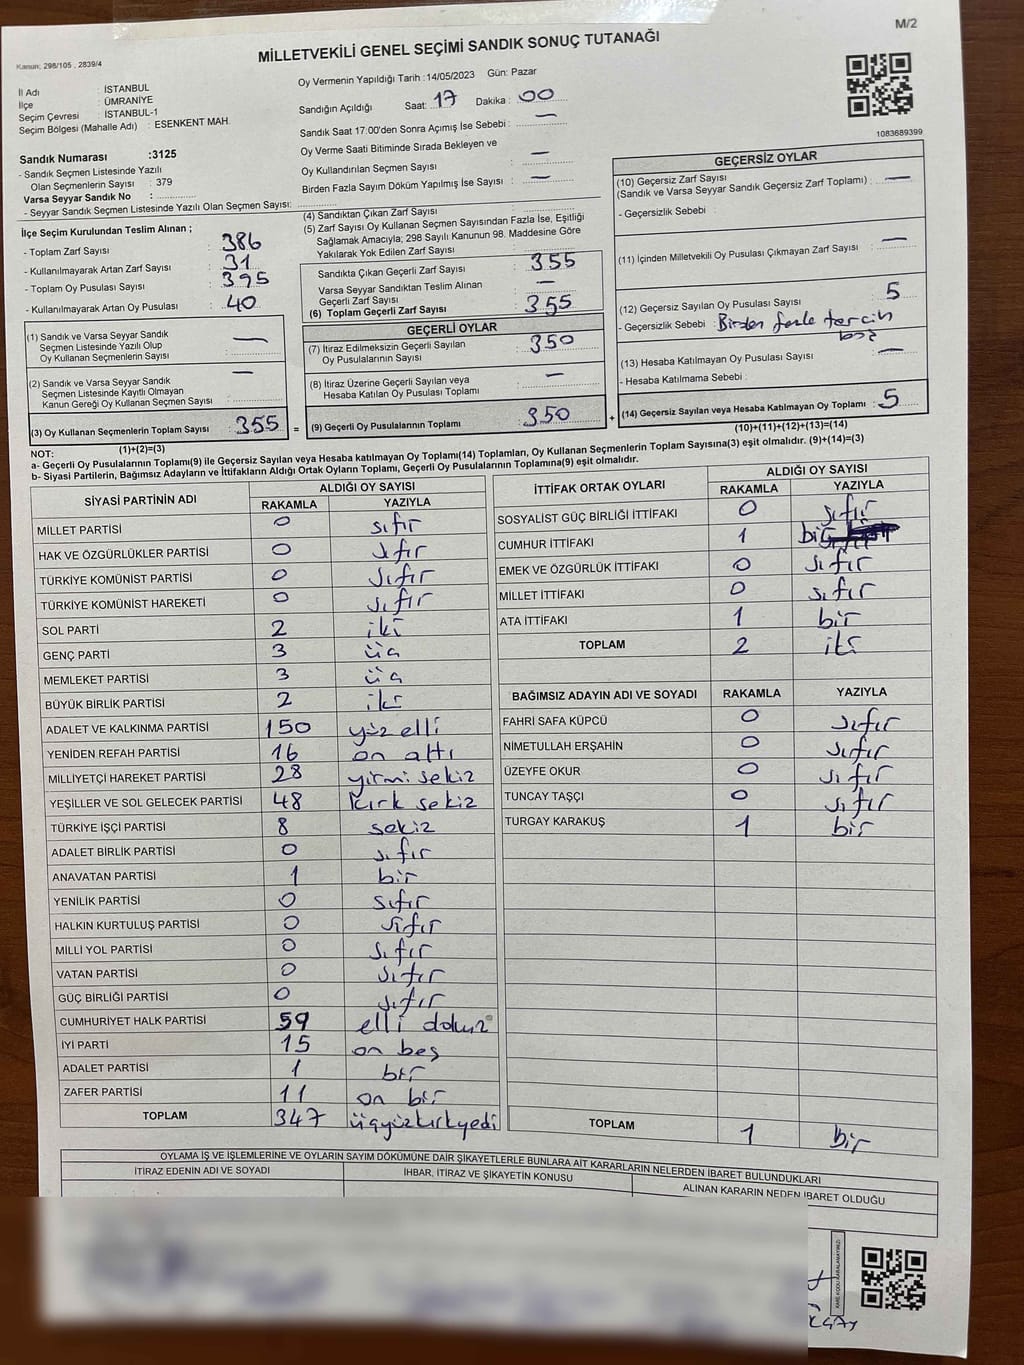 M/2
MİLLETVEKİLİ GENEL SEÇİMİ SANDIK SONUÇ TUTANAĞI
Kanun: 298/105 , 2839/4
İl Adı : İSTANBUL
İlçe : ÜMRANİYE
Seçim Çevresi : İSTANBUL-1
Seçim Bölgesi (Mahalle Adı) : ESENKENT MAH.
Oy Vermenin Yapıldığı Tarih :14/05/2023 Gün: Pazar
Sandığın Açıldığı Saat: 17 Dakika : 00
Sandık Saat 17:00'den Sonra Açımış İse Sebebi : —
Oy Verme Saati Bitiminde Sırada Bekleyen ve
Oy Kullandırılan Seçmen Sayısı : —
Birden Fazla Sayım Döküm Yapılmış İse Sayısı : —
1083689399
Sandık Numarası :3125
- Sandık Seçmen Listesinde Yazılı
Olan Seçmenlerin Sayısı : 379
Varsa Seyyar Sandık No :
- Seyyar Sandık Seçmen Listesinde Yazılı Olan Seçmen Sayısı:
İlçe Seçim Kurulundan Teslim Alınan ;
- Toplam Zarf Sayısı : 386
- Kullanılmayarak Artan Zarf Sayısı : 31
- Toplam Oy Pusulası Sayısı : 395
- Kullanılmayarak Artan Oy Pusulası : 40
(1) Sandık ve Varsa Seyyar Sandık
Seçmen Listesinde Yazılı Olup
Oy Kullanan Seçmenlerin Sayısı : —
(2) Sandık ve Varsa Seyyar Sandık
Seçmen Listesinde Kayıtlı Olmayan
Kanun Gereği Oy Kullanan Seçmen Sayısı : —
(3) Oy Kullanan Seçmenlerin Toplam Sayısı : 355
(1)+(2)=(3)
(4) Sandıktan Çıkan Zarf Sayısı :
(5) Zarf Sayısı Oy Kullanan Seçmen Sayısından Fazla İse, Eşitliği
Sağlamak Amacıyla; 298 Sayılı Kanunun 98. Maddesine Göre
Yakılarak Yok Edilen Zarf Sayısı :
Sandıkta Çıkan Geçerli Zarf Sayısı : 355
Varsa Seyyar Sandıktan Teslim Alınan
Geçerli Zarf Sayısı : —
(6) Toplam Geçerli Zarf Sayısı : 355
GEÇERLİ OYLAR
(7) İtiraz Edilmeksizin Geçerli Sayılan
Oy Pusulalarının Sayısı : 350
(8) İtiraz Üzerine Geçerli Sayılan veya
Hesaba Katılan Oy Pusulası Toplamı : —
= (9) Geçerli Oy Pusulalarının Toplamı : 350
GEÇERSİZ OYLAR
(10) Geçersiz Zarf Sayısı
(Sandık ve Varsa Seyyar Sandık Geçersiz Zarf Toplamı) : —
- Geçersizlik Sebebi :
(11) İçinden Milletvekili Oy Pusulası Çıkmayan Zarf Sayısı : —
(12) Geçersiz Sayılan Oy Pusulası Sayısı : 5
- Geçersizlik Sebebi : Birden fazla tercih
(13) Hesaba Katılmayan Oy Pusulası Sayısı : —
- Hesaba Katılmama Sebebi :
+ (14) Geçersiz Sayılan veya Hesaba Katılmayan Oy Toplamı : 5
(10)+(11)+(12)+(13)=(14)
NOT:
a- Geçerli Oy Pusulalarının Toplamı(9) ile Geçersiz Sayılan veya Hesaba Katılmayan Oy Toplamı(14) Toplamları, Oy Kullanan Seçmenlerin Toplam Sayısına(3) eşit olmalıdır. (9)+(14)=(3)
b- Siyasi Partilerin, Bağımsız Adayların ve İttifakların Aldığı Ortak Oyların Toplamı, Geçerli Oy Pusulalarının Toplamına(9) eşit olmalıdır.
SİYASİ PARTİNİN ADI ALDIĞI OY SAYISI
RAKAMLA YAZIYLA
MİLLET PARTİSİ 0 sıfır
HAK VE ÖZGÜRLÜKLER PARTİSİ 0 sıfır
TÜRKİYE KOMÜNİST PARTİSİ 0 sıfır
TÜRKİYE KOMÜNİST HAREKETİ 0 sıfır
SOL PARTİ 2 iki
GENÇ PARTİ 3 üç
MEMLEKET PARTİSİ 3 üç
BÜYÜK BİRLİK PARTİSİ 2 iki
ADALET VE KALKINMA PARTİSİ 150 yüz elli
YENİDEN REFAH PARTİSİ 16 on altı
MİLLİYETÇİ HAREKET PARTİSİ 28 yirmi sekiz
YEŞİLLER VE SOL GELECEK PARTİSİ 48 kırk sekiz
TÜRKİYE İŞÇİ PARTİSİ 8 sekiz
ADALET BİRLİK PARTİSİ 0 sıfır
ANAVATAN PARTİSİ 1 bir
YENİLİK PARTİSİ 0 sıfır
HALKIN KURTULUŞ PARTİSİ 0 sıfır
MİLLİ YOL PARTİSİ 0 sıfır
VATAN PARTİSİ 0 sıfır
GÜÇ BİRLİĞİ PARTİSİ 0 sıfır
CUMHURİYET HALK PARTİSİ 59 elli dokuz
İYİ PARTİ 15 on beş
ADALET PARTİSİ 1 bir
ZAFER PARTİSİ 11 on bir
TOPLAM 347 üçyüzkırkyedi
İTTİFAK ORTAK OYLARI ALDIĞI OY SAYISI
RAKAMLA YAZIYLA
SOSYALİST GÜÇ BİRLİĞİ İTTİFAKI 0 sıfır
CUMHUR İTTİFAKI 1 bir
EMEK VE ÖZGÜRLÜK İTTİFAKI 0 sıfır
MİLLET İTTİFAKI 0 sıfır
ATA İTTİFAKI 1 bir
TOPLAM 2 iki
BAĞIMSIZ ADAYIN ADI VE SOYADI RAKAMLA YAZIYLA
FAHRİ SAFA KÜPCÜ 0 sıfır
NİMETULLAH ERŞAHİN 0 sıfır
ÜZEYFE OKUR 0 sıfır
TUNCAY TAŞÇI 0 sıfır
TURGAY KARAKUŞ 1 bir
TOPLAM 1 bir
OYLAMA İŞ VE İŞLEMLERİNE VE OYLARIN SAYIM DÖKÜMÜNE DAİR ŞİKAYETLERLE BUNLARA AİT KARARLARIN NELERDEN İBARET BULUNDUKLARI
İTİRAZ EDENİN ADI VE SOYADI İHBAR, İTİRAZ VE ŞİKAYETİN KONUSU ALINAN KARARIN NEDEN İBARET OLDUĞU
KARE KODU KARALAMAYINIZ!